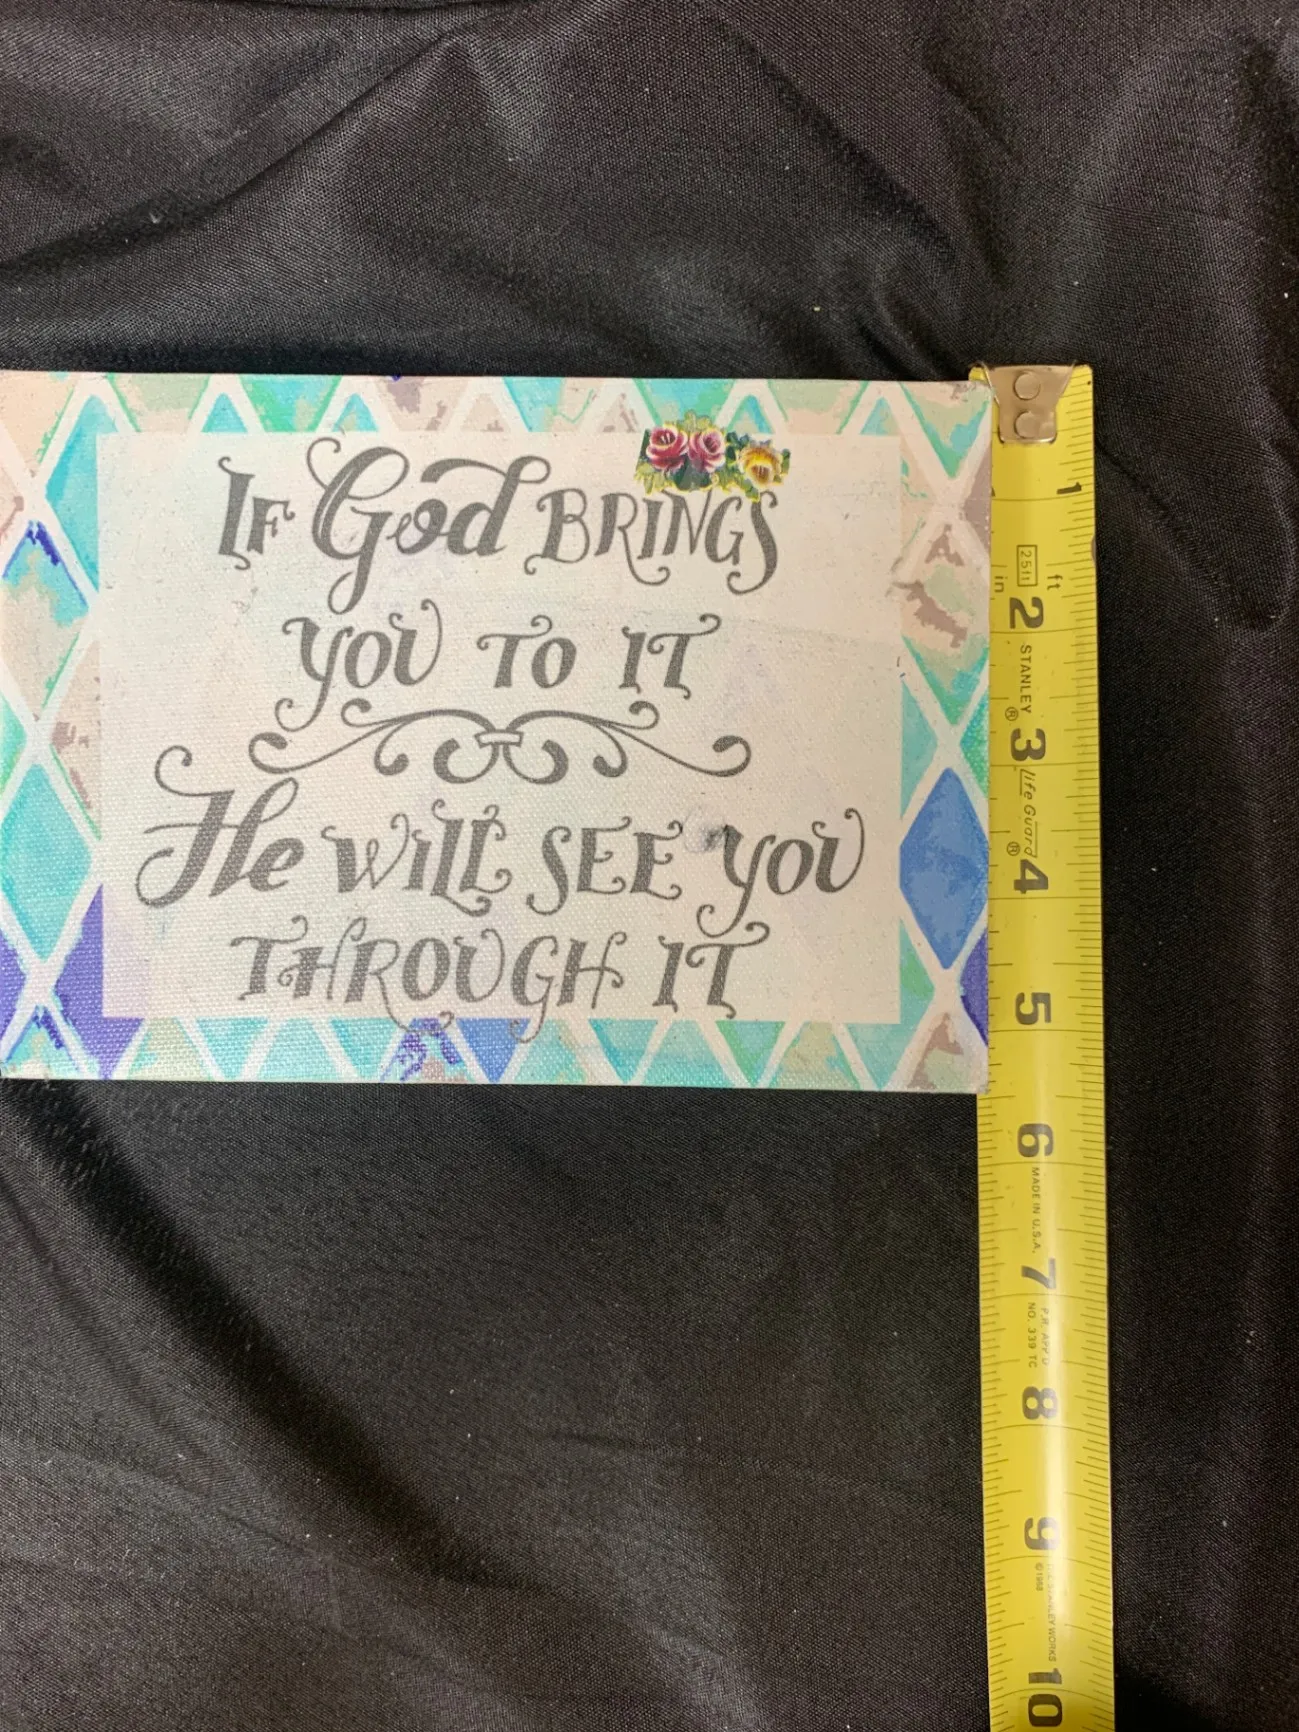 IF God BRINGS
YOU TO IT
He WILL SEE YOU
THROUGH IT
1
25ft
in
ft
2
STANLEY
®
3
Life Guard
®
4
5
6
MADE IN U.S.A.
7
NO. 339 TC
8
9
©1988
STANLEY WORKS
10